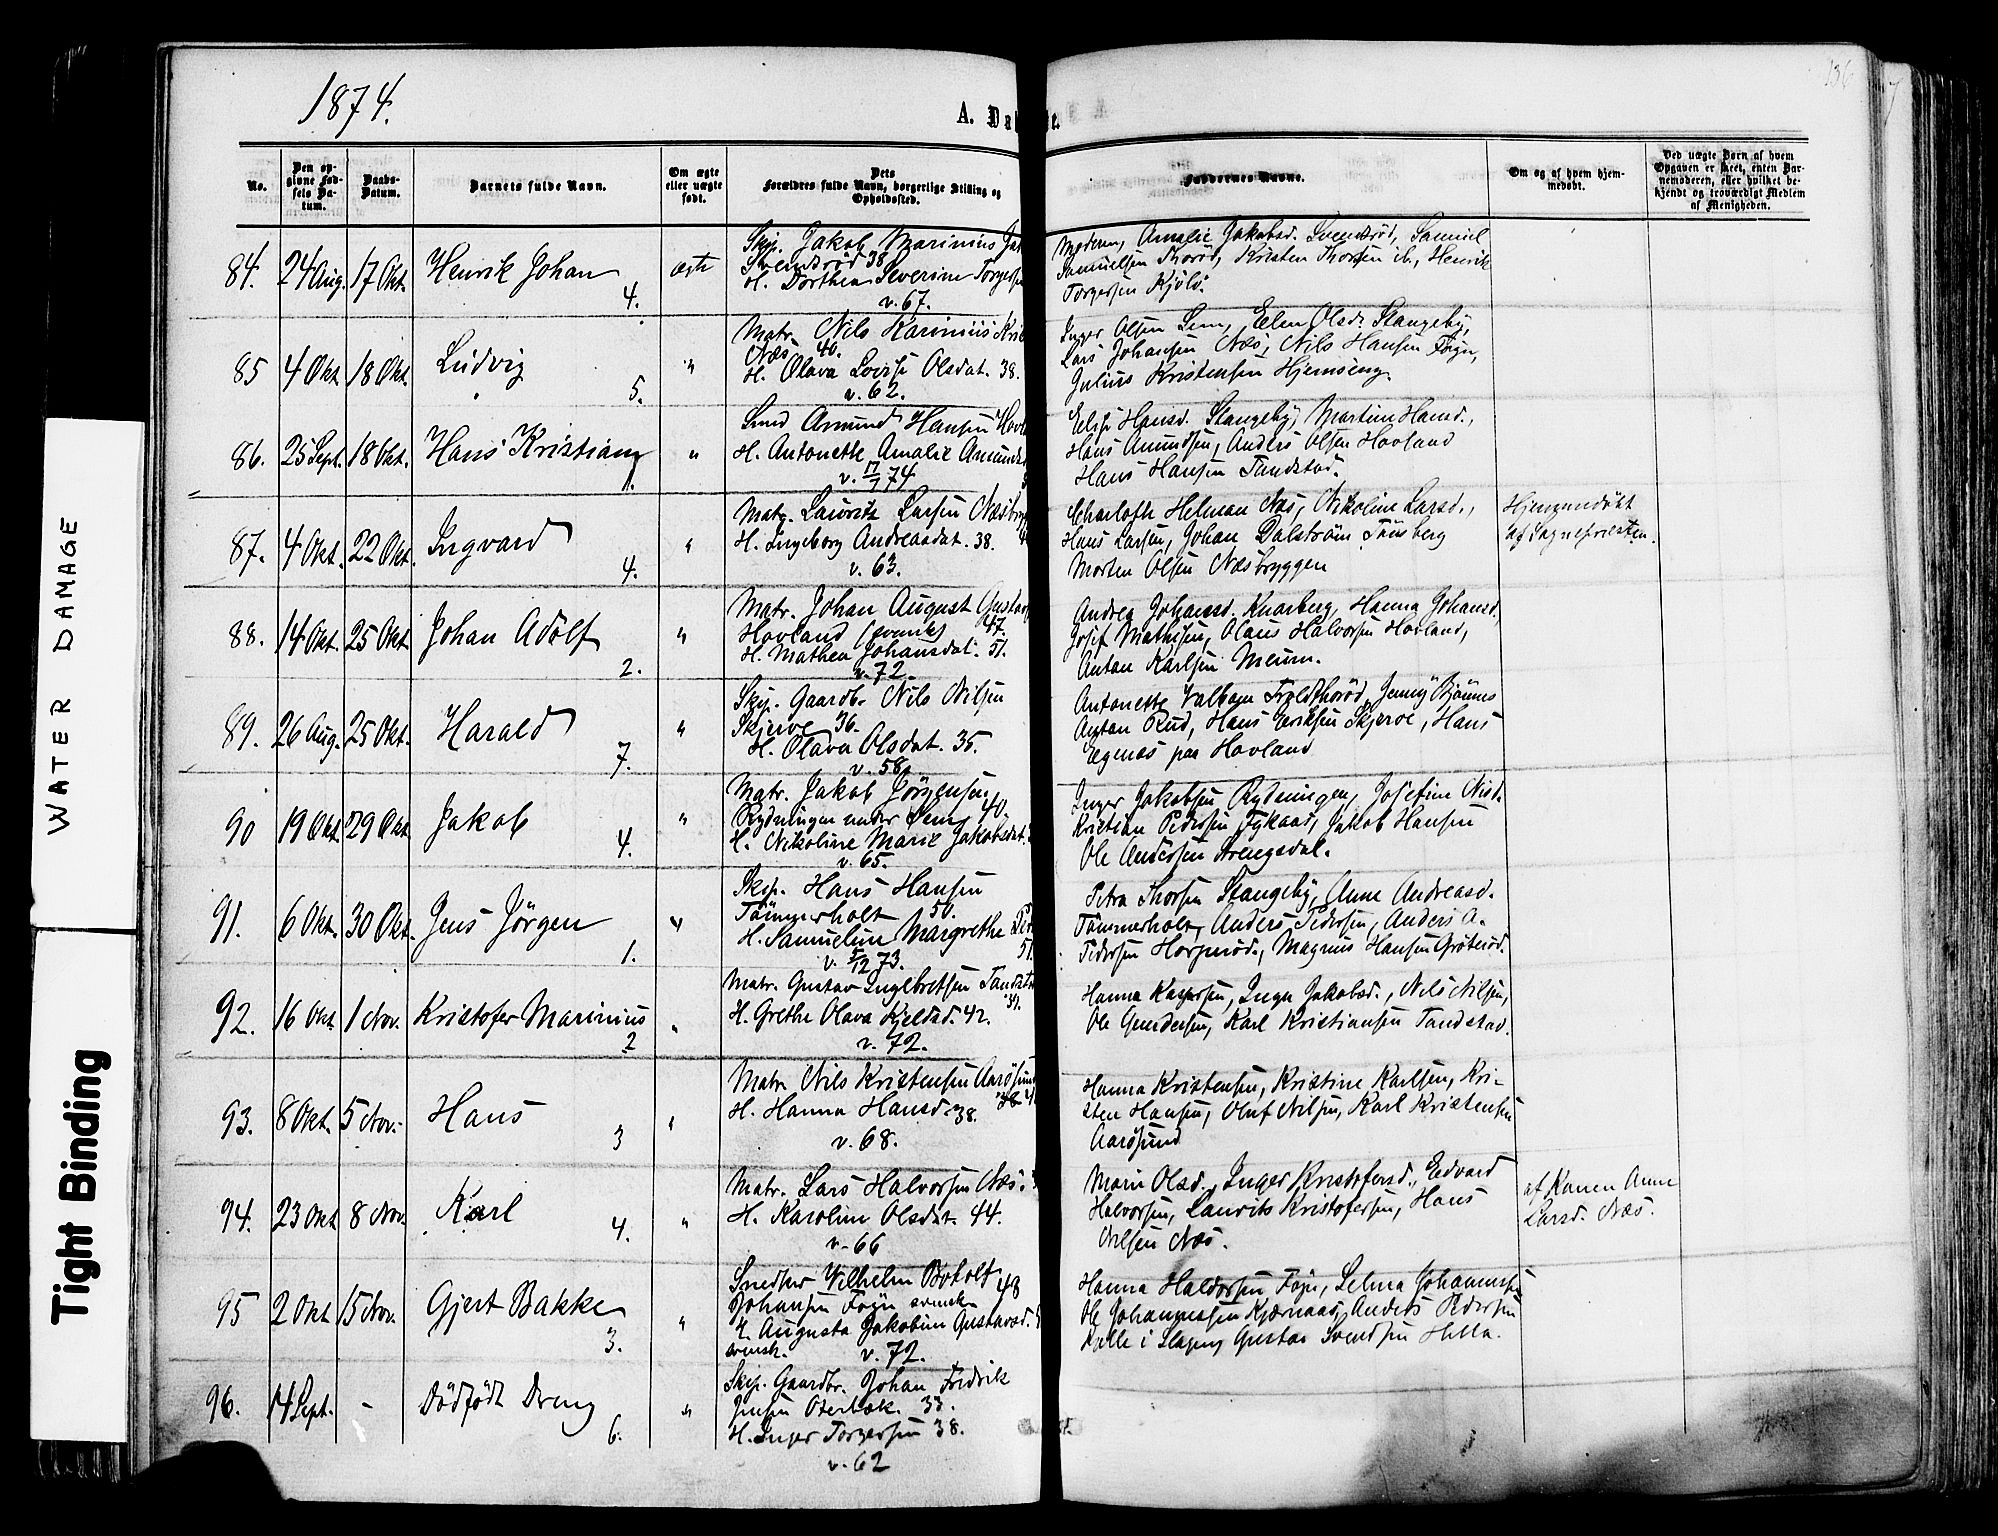 WATER DAMAGE
Tight Binding
1874.
136
A.
No.
Den op-
givne Fød-
sels Da-
tum.
Daabs-
Datum.
Barnets fulde Navn.
Om ægte
eller uægte
født.
Dets
Forældres fulde Navn, borgerlige Stilling og
Opholdssted.
Faddernes Navne.
Om og af hvem hjem-
medøbt.
Ved uægte Børn af hvem
Opgaven er skeet, enten Bar-
nemoderen, eller hvilket be-
kjendt og troværdigt Medlem
af Menigheden.
84. 24 Aug. 17 Okt. Henrik Johan 4. ægte
Skip. Jakob Marinius
Svendsrød 38
H. Dorthea Severine
v. 67.
Moderen, Amalie Jakobsd. Svendsrød, Samuel
Samuelsen Thorød, Kristen Thorsen ib., Henrik
Torgersen Kjølø.
85 4 Okt. 18 Okt. Ludvig 5. "
Matr. Nils Karinius
Næs 40.
H. Olava Lovise Olsdat. 38.
v. 62.
Inger Olsen Sem, Elen Olsd. Stangeby,
Lars Johansen Næs, Nils Hansen Føyn,
Julius Kristensen Hjemseng.
86. 25 Sept. 18 Okt. Hans Kristian 1. "
Smed Amund Hansen
H. Antonette Amalie
v. 17/1 74
Elise Hansd. Stangeby, Martine Hansd.,
Hans Amundsen, Anders Olsen Hovland
Hans Hansen Tandstad.
87. 4 Okt. 22 Okt. Ingvard 4. "
Matr. Lauritz Larsen
H. Ingeborg Andreasdat. 38.
v. 63.
Charlotte Helman Næs, Nikoline Larsd.,
Hans Larsen, Johan Dalstrøm Tønsberg
Morten Olsen Næsbryggen
Hjemmedøbt
af Sognepresten.
88. 14 Okt. 25 Okt. Johan Adolf 2. "
Matr. Johan August
Hovland (svensk) 47.
H. Mathea Johansdat. 51.
v. 72.
Andrea Johansd. Knarberg, Hanna Johansd.,
Josef Mathisen, Olaus Halvorsen Hovland,
Anton Karlsen Meum.
89. 26 Aug. 25 Okt. Harald 7. "
Skip. Gaardb. Nils Nilsen
Skjerve 36.
H. Olava Olsdat. 35.
v. 58.
Antonette Jenny
Anton Rud, Hans Eriksen Skjerve, Hans
Egenæs paa Hovland
90 19 Okt. 29 Okt. Jakob 4. "
Matr. Jakob Jörgensen
Rydningen under Sem 40.
H. Nikoline Marie Jakobsdat.
v. 65.
Inger Jakobsen Rydningen, Josefine
Kristian Pedersen Jakob Hansen
Ole Andersen Strengsdal.
91. 6 Okt. 30 Okt. Jens Jörgen 1. "
Skip. Hans Hansen
Tömmerholt 50.
H. Samueline Margrethe
51.
v. 5/12 73.
Petra Thorsen Stangeby, Anne Andreasd.
Tömmerholt, Anders Pedersen, Anders A.
Pedersen Magnus Hansen Grøterød.
92. 16 Okt. 1 Nov. Kristofer Marinius 2 "
Matr. Gustav Ingebretsen
H. Grethe Olava Kjeldsd. 42.
v. 72.
Hanna Kaspersen, Inger Jakobsd., Nils Nilsen,
Ole Gundersen, Karl Kristiansen Tandstad.
93. 8 Okt. 5 Nov. Hans 3 "
Matr. Nils Kristensen Aarøsund
H. Hanna Hansd. 38.
v. 68.
Hanna Kristensen, Kristine Karlsen, Kri-
sten Hansen, Oluf Nilsen, Karl Kristensen
Aarøsund
94. 23 Okt 8 Nov. Karl 4. "
Matr. Lars Halvorsen Næs.
H. Karoline Olsdat. 44.
v. 66
Marie Olsd., Inger Kristofersd., Edvard
Halvorsen, Laurits Kristofersen, Hans
Nilsen Næs.
af Konen Anne
Larsd. Næs.
95 2 Okt 15 Nov. Gjert Bakke 3. "
Snedker Vilhelm Botolf 48
Johansen Føyn svensk
H. Augusta Jakobine Gustavsd.
svensk. v. 72.
Hanna Haldorsen Føyn, Selma Johannesen
Ole Johannessen Kjærnaas, Anders Pedersen
Kalle i Slagen, Gustav Svendsen Hella.
96. 14 Sept. - Dødfødt Dreng 6. "
Skip. Gaardbr. Johan Fredrik
Jensen Oterbæk. 33.
H. Inger Torgersen 38.
v. 62